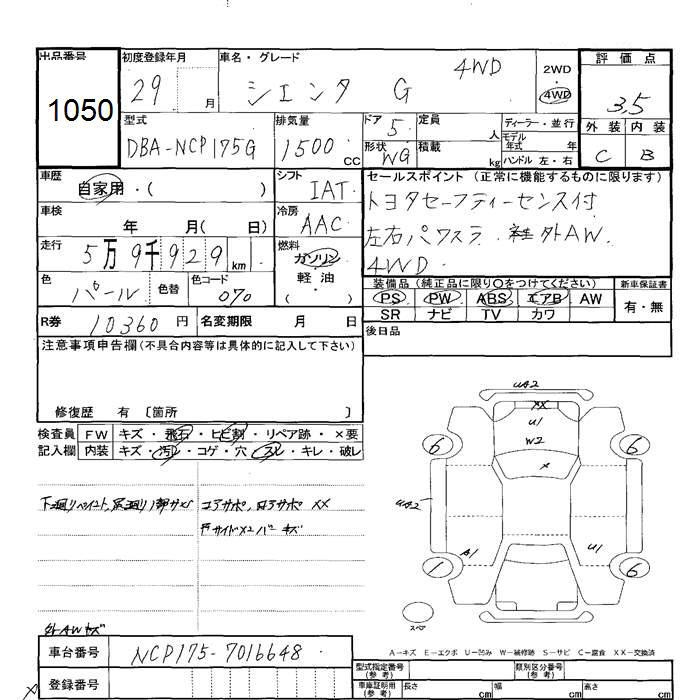 出品番号 初度登録年月 車名・グレード 2WD 評価点
1050 29 月 シエンタ G 4WD 4WD 3.5
型式 排気量 ドア 5 定員 人 ディーラー・並行 外装 内装
DBA-NCP175G 1500 CC 形状 WG 積載 kg モデル年式 年 ハンドル 左・右 C B
車歴 シフト セールスポイント (正常に機能するものに限ります)
自家用・( ) IAT トヨタセーフティーセンス付
車検 年 月( 日) 冷房 AAC 左右パワスラ 社外AW.
走行 5万9千929 km 燃料 ガソリン・軽油・ 4WD
色 パール 色替 色コード 070 装備品 (純正品に限り〇をつけてください) 新車保証書
PS PW ABS エアB AW 有・無
SR ナビ TV カワ
R券 10360 円 名変期限 月 日 後日品
注意事項申告欄(不具合内容等は具体的に記入して下さい)
修復歴 有 〔箇所 〕
検査員 FW キズ・飛石・ヒビ割・リペア跡・×要
記入欄 内装 キズ・汚れ・コゲ・穴・スレ・キレ・破レ
コアサポ, ロアサポ XX
キズ
外AWキズ
UA2
XX
U1
W2
×
6 6
UA2
A1 U1
1 6
スペア
A-キズ E-エクボ U-凹み W-補修跡 S-サビ C-腐食 XX-交換済
車台番号 NCP175-7016648
登録番号
型式指定番号(参考) 類別区分番号(参考)
車庫証明用(参考) 長さ cm 幅 cm 高さ cm